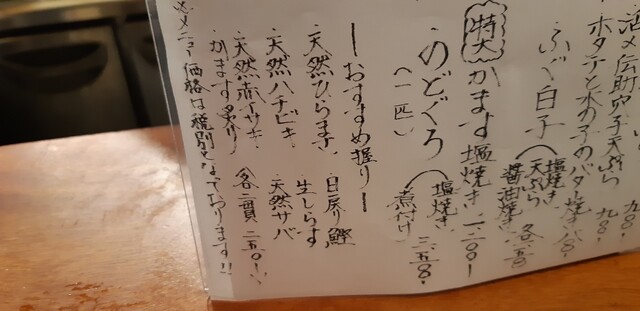 活〆伝助穴子天ぷら 九八〇-
ホタテと木の子のバター焼き 九八〇-
ふぐ白子(塩焼き 天ぷら 醤油焼き 各
特大 かます塩焼き
のどぐろ(塩焼き 煮付け)
(一匹)
-おすすめ握り-
・天然ひらまさ ・日戻り鰹
・天然ハチビキ ・生しらす
・天然赤イサキ ・天然サバ
・かます炙り 各二貫 二五〇-
※メニュー価格は税別となっております!!